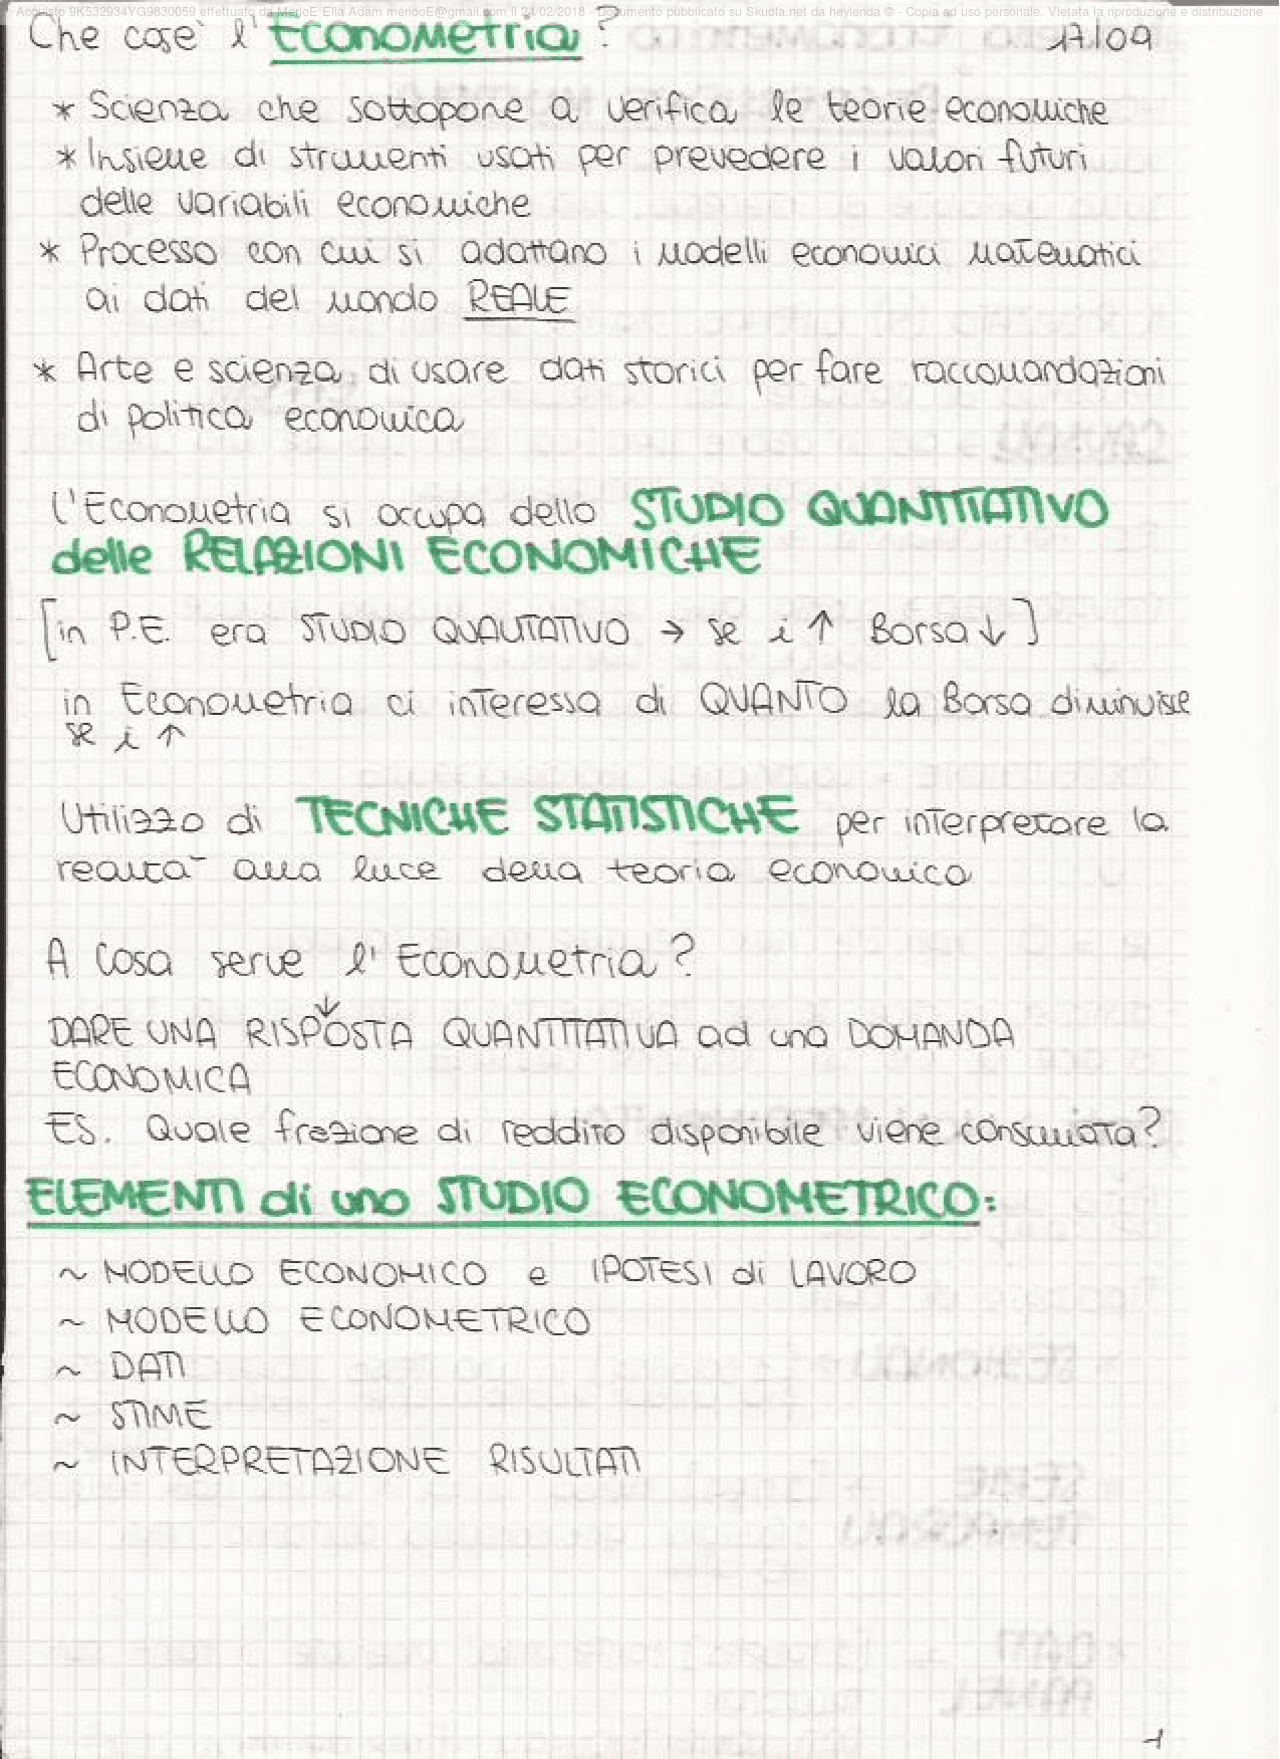 Acquisto 9K532934YG9830059 effettuato da MerjoE Elia Adam merjooE@gmail.com il 21/02/2018 - Documento pubblicato su Skuola.net da heylenda © - Copia ad uso personale. Vietata la riproduzione e distribuzione
Che cose' l'Econometria? 17/09
* Scienza che sottopone a verifica le teorie economiche
* Insieme di strumenti usati per prevedere i valori futuri
delle variabili economiche
* Processo con cui si adattano i modelli economici matematici
ai dati del mondo REALE
* Arte e scienza di usare dati storici per fare raccomandazioni
di politica economica
L'Econometria si occupa dello STUDIO QUANTITATIVO
delle RELAZIONI ECONOMICHE
[in P.E. era STUDIO QUALITATIVO → se i ↑ Borsa ↓]
in Econometria ci interessa di QUANTO la Borsa diminuisce
se i ↑
Utilizzo di TECNICHE STATISTICHE per interpretare la
realtà alla luce della teoria economica
A cosa serve l'Econometria?
↓
DARE UNA RISPOSTA QUANTITATIVA ad una DOMANDA
ECONOMICA
ES. Quale frazione di reddito disponibile viene consumata?
ELEMENTI di uno STUDIO ECONOMETRICO:
~ MODELLO ECONOMICO e IPOTESI di LAVORO
~ MODELLO ECONOMETRICO
~ DATI
~ STIME
~ INTERPRETAZIONE RISULTATI
1